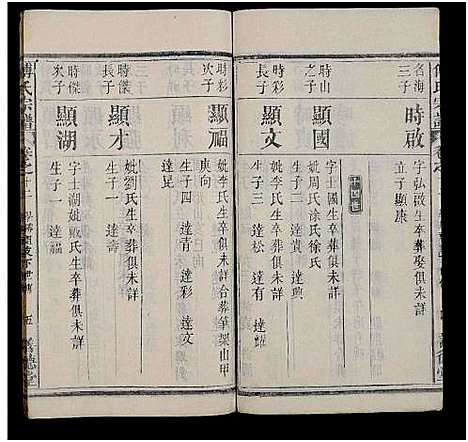 名海
三子
時啟
字弘啟生卒葬娶俱未詳
立子顯康
十四世
時山
之子
顯國
字士國生卒葬俱未詳
妣周氏涂氏徐氏
生子二 達貴 達興
時彩
長子
顯文
妣李氏生卒葬俱未詳
生子三 達松 達有 達耀
時彩
次子
顯福
妣李氏生卒俱未詳合葬筆架山甲
庚向
生子四 達青 達彩 達文
達昆
時傑
長子
顯才
妣劉氏生卒葬俱未詳
生子一 達壽
時傑
次子
顯湖
字士湖妣敖氏生卒葬俱未詳
生子一 達福
傅氏宗譜
五